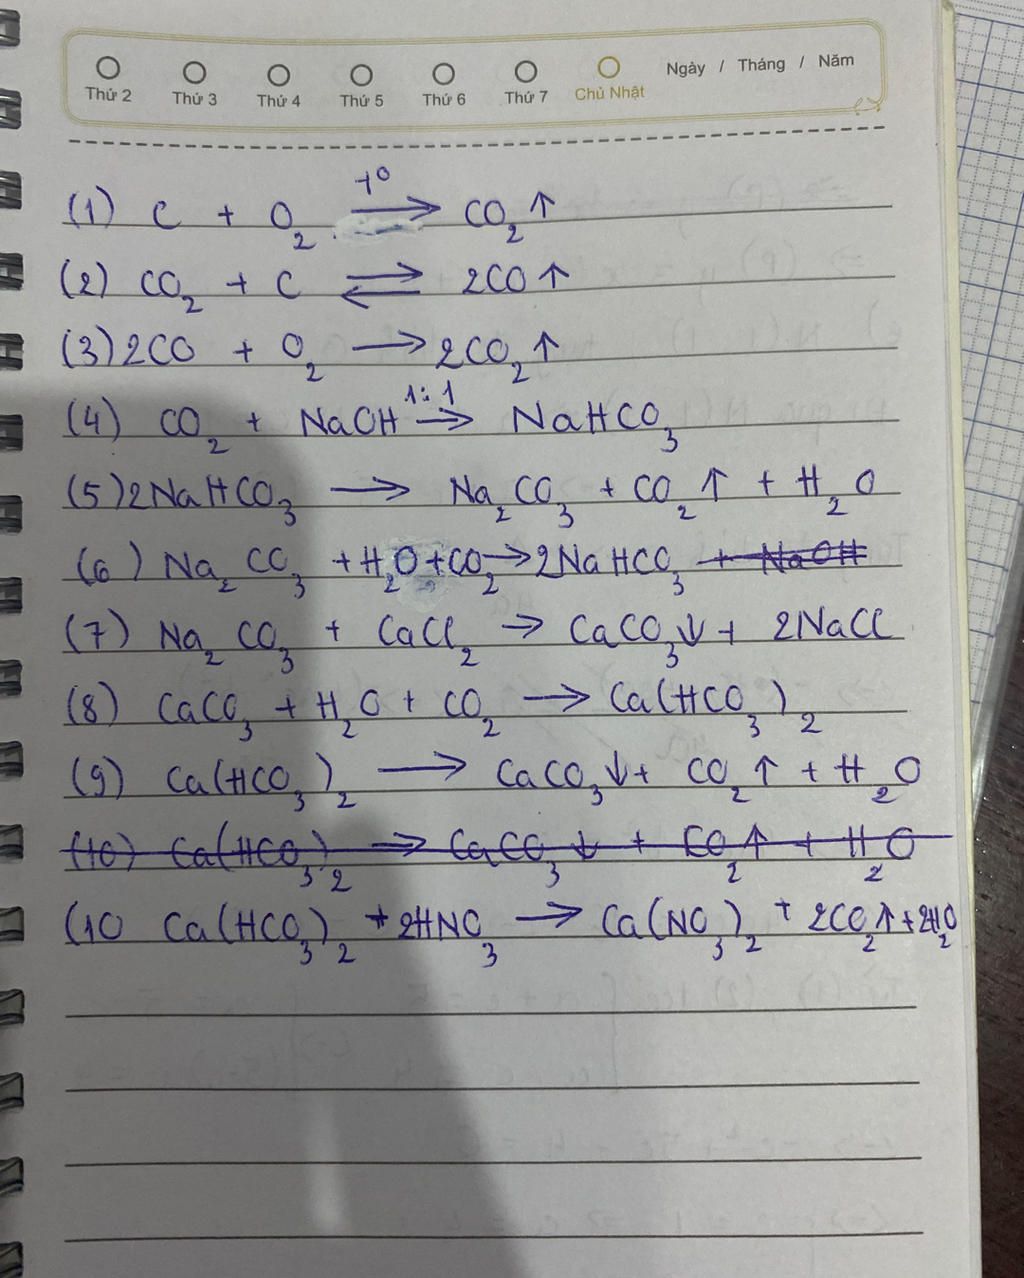 Thứ 2 Thứ 3 Thứ 4 Thứ 5 Thứ 6 Thứ 7 Chủ Nhật Ngày / Tháng / Năm
(1) C + O₂ →(t⁰) CO₂↑
(2) CO₂ + C ⇌ 2CO↑
(3) 2CO + O₂ → 2CO₂↑
(4) CO₂ + NaOH →(1:1) NaHCO₃
(5) 2NaHCO₃ → Na₂CO₃ + CO₂↑ + H₂O
(6) Na₂CO₃ + H₂O + CO₂ → 2NaHCO₃ + NaOH
(7) Na₂CO₃ + CaCl₂ → CaCO₃↓ + 2NaCl
(8) CaCO₃ + H₂O + CO₂ → Ca(HCO₃)₂
(9) Ca(HCO₃)₂ → CaCO₃↓ + CO₂↑ + H₂O
(10) Ca(HCO₃)₂ → CaCO₃↓ + CO₂↑ + H₂O
(10 Ca(HCO₃)₂ + 2HNO₃ → Ca(NO₃)₂ + 2CO₂↑ + 2H₂O